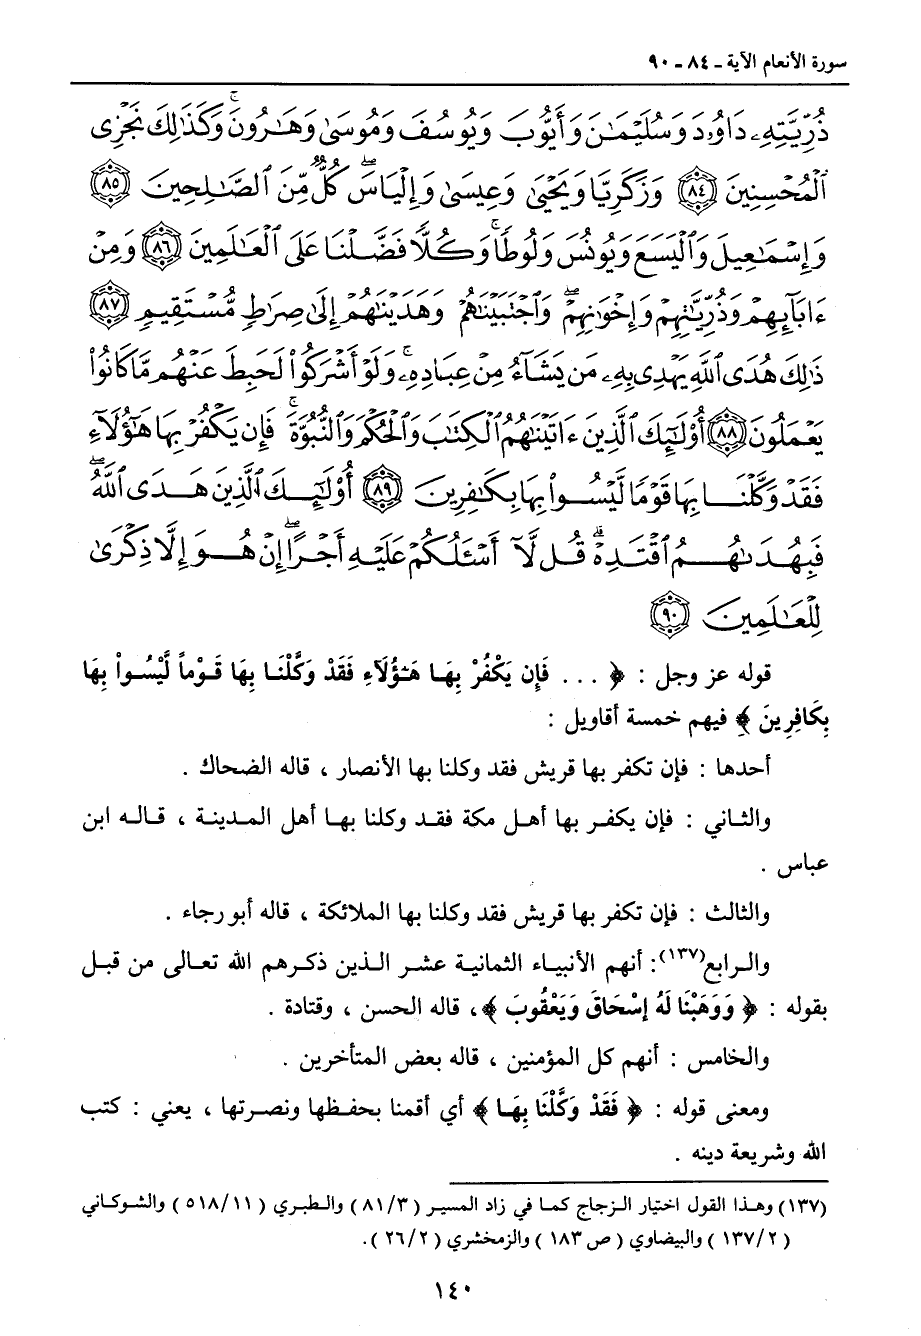 سورة الأنعام الآية ـ ٨٤ ـ ٩٠
ذُرِّيَّتِهِۦ دَاوُۥدَ وَسُلَيْمَٰنَ وَأَيُّوبَ وَيُوسُفَ وَمُوسَىٰ وَهَٰرُونَ ۚ وَكَذَٰلِكَ نَجْزِى
ٱلْمُحْسِنِينَ ﴿٨٤﴾ وَزَكَرِيَّا وَيَحْيَىٰ وَعِيسَىٰ وَإِلْيَاسَ ۖ كُلٌّ مِّنَ ٱلصَّٰلِحِينَ ﴿٨٥﴾
وَإِسْمَٰعِيلَ وَٱلْيَسَعَ وَيُونُسَ وَلُوطًا ۚ وَكُلًّا فَضَّلْنَا عَلَى ٱلْعَٰلَمِينَ ﴿٨٦﴾ وَمِنْ
ءَابَآئِهِمْ وَذُرِّيَّٰتِهِمْ وَإِخْوَٰنِهِمْ ۖ وَٱجْتَبَيْنَٰهُمْ وَهَدَيْنَٰهُمْ إِلَىٰ صِرَٰطٍ مُّسْتَقِيمٍ ﴿٨٧﴾
ذَٰلِكَ هُدَى ٱللَّهِ يَهْدِى بِهِۦ مَن يَشَآءُ مِنْ عِبَادِهِۦ ۚ وَلَوْ أَشْرَكُوا۟ لَحَبِطَ عَنْهُم مَّا كَانُوا۟
يَعْمَلُونَ ﴿٨٨﴾ أُو۟لَٰٓئِكَ ٱلَّذِينَ ءَاتَيْنَٰهُمُ ٱلْكِتَٰبَ وَٱلْحُكْمَ وَٱلنُّبُوَّةَ ۚ فَإِن يَكْفُرْ بِهَا هَٰٓؤُلَآءِ
فَقَدْ وَكَّلْنَا بِهَا قَوْمًا لَّيْسُوا۟ بِهَا بِكَٰفِرِينَ ﴿٨٩﴾ أُو۟لَٰٓئِكَ ٱلَّذِينَ هَدَى ٱللَّهُ ۖ
فَبِهُدَىٰهُمُ ٱقْتَدِهْ ۗ قُل لَّآ أَسْـَٔلُكُمْ عَلَيْهِ أَجْرًا ۖ إِنْ هُوَ إِلَّا ذِكْرَىٰ
لِلْعَٰلَمِينَ ﴿٩٠﴾
قوله عز وجل : ﴿ . . . فَإِن يَكْفُرْ بِهَا هَـٰؤُلَاءِ فَقَدْ وَكَّلْنَا بِهَا قَوْماً لَّيْسُواْ بِهَا
بِكَافِرِينَ ﴾ فيهم خمسة أقاويل :
أحدها : فإن تكفر بها قريش فقد وكلنا بها الأنصار ، قاله الضحاك .
والثاني : فإن يكفر بها أهل مكة فقد وكلنا بها أهل المدينة ، قاله ابن
عباس .
والثالث : فإن تكفر بها قريش فقد وكلنا بها الملائكة ، قاله أبو رجاء .
والرابع(١٣٧): أنهم الأنبياء الثمانية عشر الذين ذكرهم الله تعالى من قبل
بقوله : ﴿ وَوَهَبْنَا لَهُ إِسْحَاقَ وَيَعْقُوبَ ﴾، قاله الحسن ، وقتادة .
والخامس : أنهم كل المؤمنين ، قاله بعض المتأخرين .
ومعنى قوله : ﴿ فَقَدْ وَكَّلْنَا بِهَا ﴾ أي أقمنا بحفظها ونصرتها ، يعني : كتب
الله وشريعة دينه .
(١٣٧) وهذا القول اختيار الزجاج كما في زاد المسير ( ٨١/٣ ) والطبري ( ٥١٨/١١ ) والشوكاني
( ١٣٧/٢ ) والبيضاوي ( ص ١٨٣ ) والزمخشري ( ٢٦/٢ ).
١٤٠